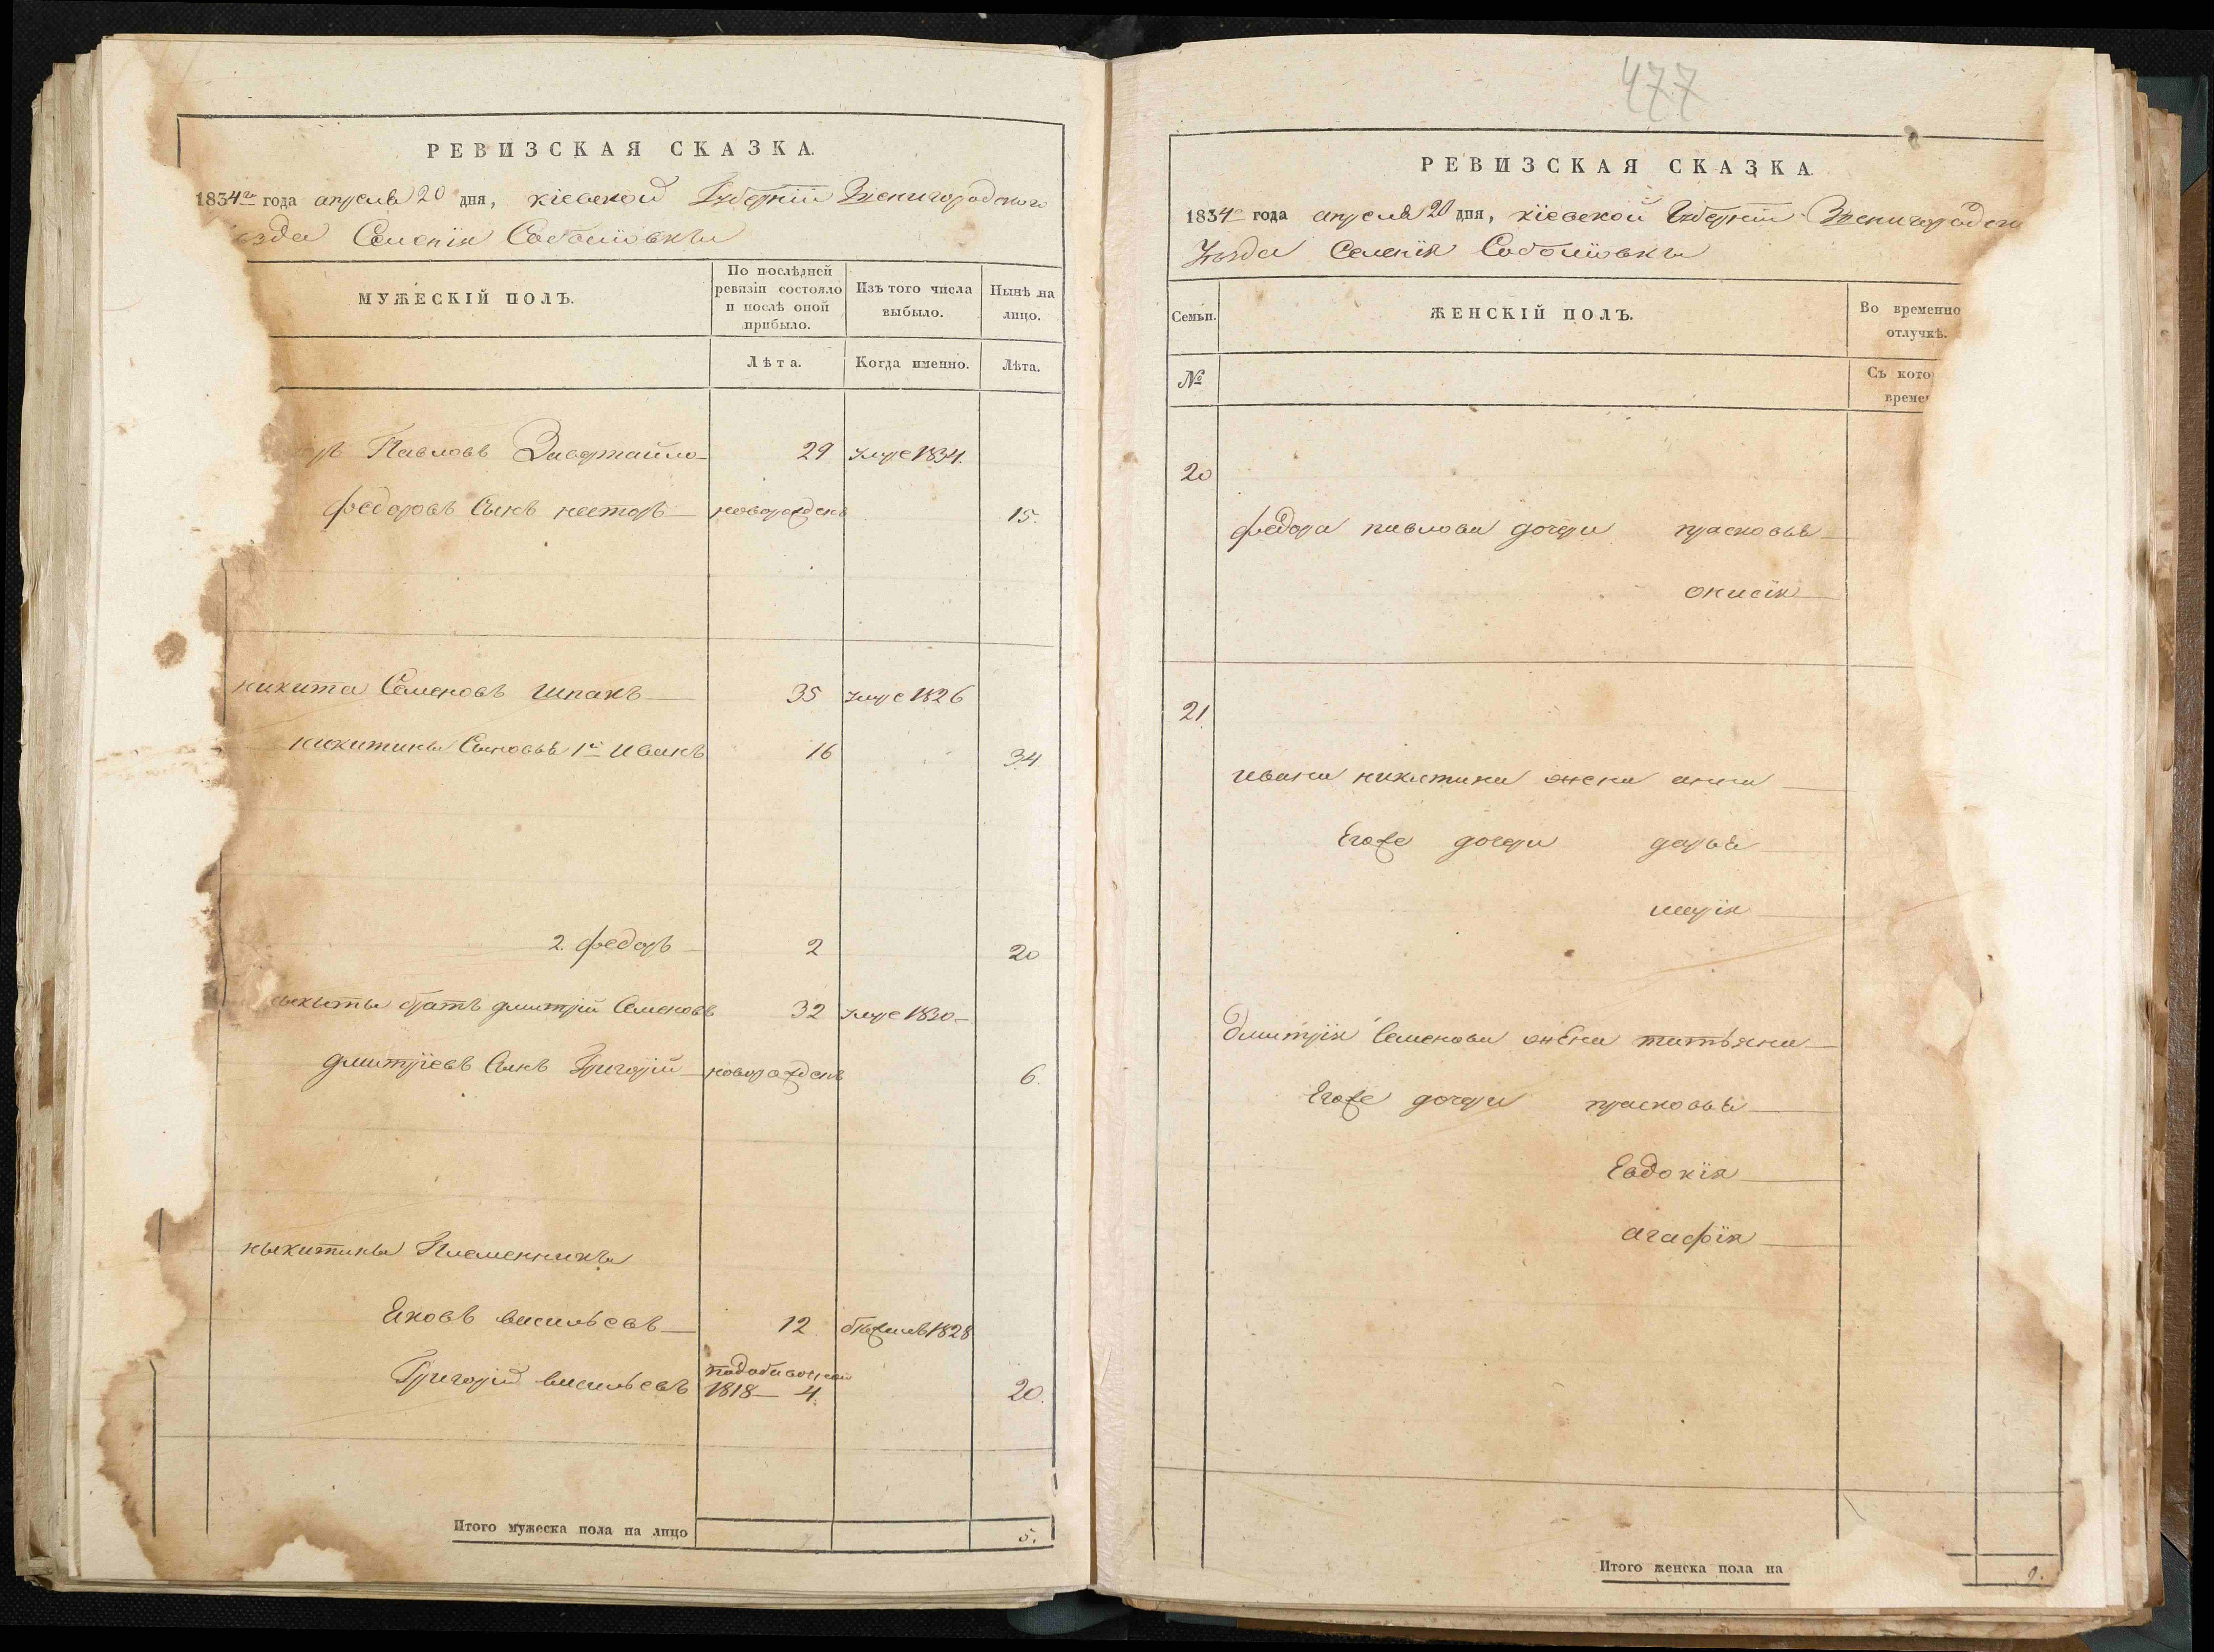 РЕВИЗСКАЯ СКАЗКА.
1834го года апреля 20 дня, кіевской Губерніи Звенигородского
езда Селенія Соболювки
МУЖЕСКІЙ ПОЛЪ.
По послѣдней ревизіи состояло и послѣ оной прибыло.
Изъ того числа выбыло.
Нынѣ на лицо.
Лѣта.
Когда именно.
Лѣта.
ръ Павловъ Завертайло 29 умре 1834.
федоровъ Сынъ несторъ новорожденъ 15.
никита Семеновъ шпакъ 35 умре 1826
никитины Сыновья 1й Иванъ 16 34
2. федоръ 2 20
братъ дмитрій Семеновъ 32 умре 1830
дмитріевъ Сынъ Григорій новорожденъ 6.
ныкитины Племенники
Яковъ васильевъ 12 1828
Григорій васильевъ 1818 4. 20.
Итого мужеска пола на лицо 5.
477
РЕВИЗСКАЯ СКАЗКА
1834го года апреля 20 дня, кіевской Губерніи Звенигородск
Уезда Селенія Соболювки
Семьи.
ЖЕНСКІЙ ПОЛЪ.
Во временно
отлучкѣ.
№
Съ кото
време
20
федора павлова дочери прасковья
21.
ивана никитина жена анна
Егоже дочери дарья
марія
Дмитрія Семенова жена татьяна
Егоже дочери прасковья
Евдокія
агафія
Итого женска пола на 9.